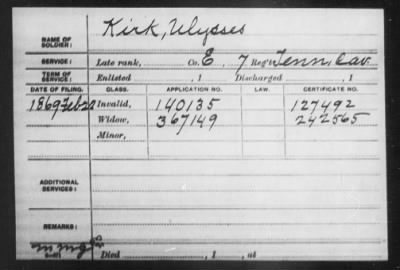 NAME OF SOLDIER: Kirk, Ulysses
SERVICE: Late rank, Co. E, 7 Reg't Tenn. Cav
TERM OF SERVICE: Enlisted , 1 Discharged , 1
DATE OF FILING. CLASS. APPLICATION NO. LAW. CERTIFICATE NO.
1869 Feb 22 Invalid, 140135 127492
Widow, 367149 242565
Minor,
ADDITIONAL SERVICES:
REMARKS:
Died , 1 , at